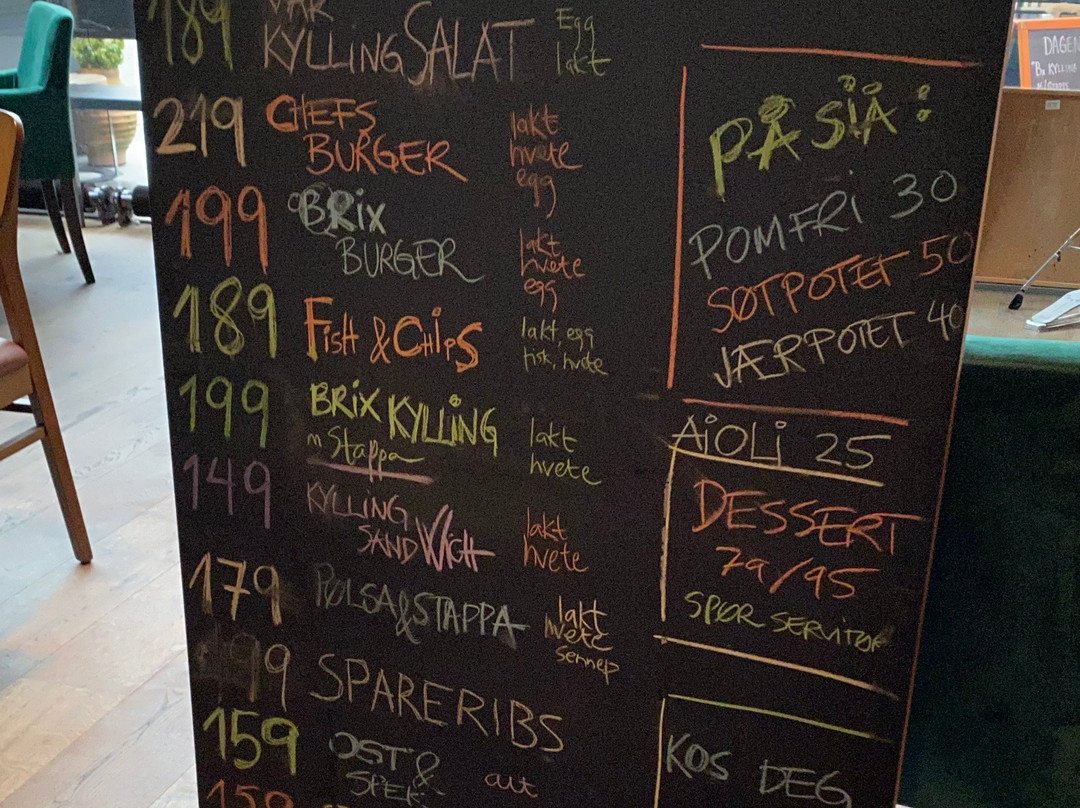 189 VÅR
KYLLING SALAT Egg
lakt
219 CHEFS
BURGER lakt
hvete
egg
199 BRIX
BURGER lakt
hvete
egg
189 Fish & Chips lakt, egg
fisk, hvete
199 BRIX KYLLING
m Stappa lakt
hvete
149 KYLLING
SANDWICH lakt
hvete
179 PØLSA & STAPPA lakt
hvete
sennep
SPARERIBS
159 OST &
SPEK alt
159
PÅ SIÅ :
POMFRI 30
SØTPOTET 50
JÆRPOTET 40
AIOLI 25
DESSERT
79/95
SPØR SERVITØR
KOS DEG
DAGEN
KYLLING